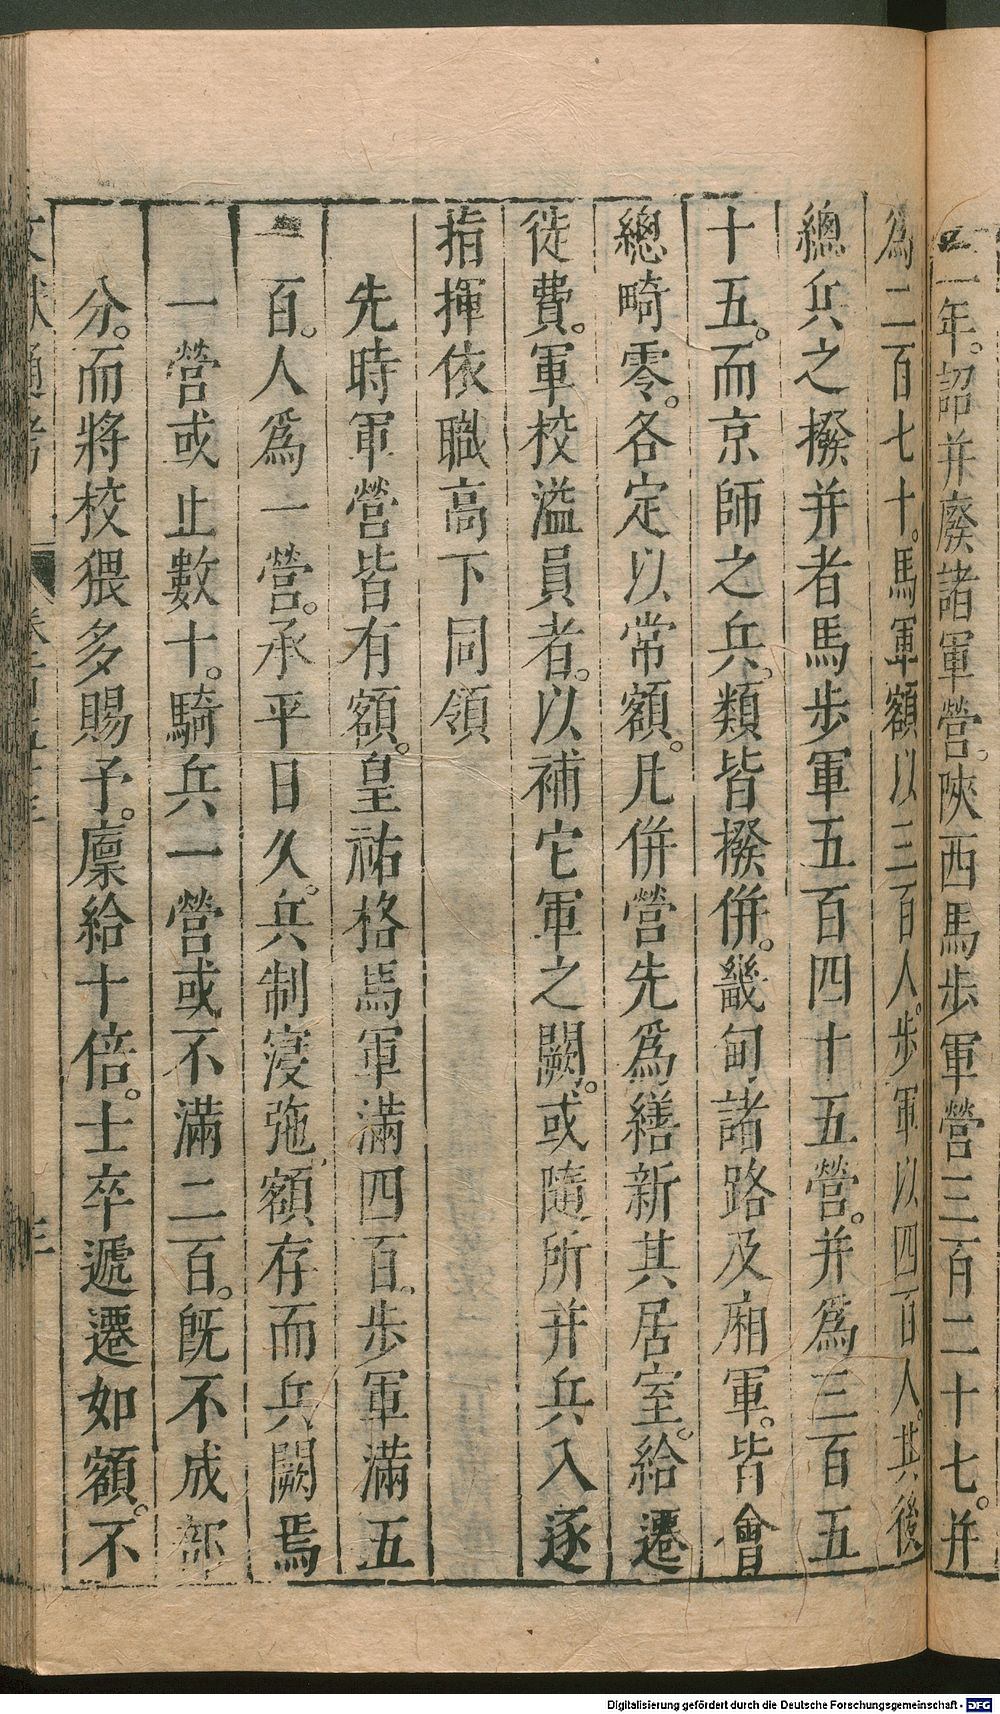 二年。詔并廢諸軍營。陝西馬步軍營三百二十七。并
爲二百七十。馬軍額以三百人。步軍以四百人。其後
總兵之撥并者馬步軍五百四十五營。并爲三百五
十五。而京師之兵。類皆撥併。畿甸諸路及廂軍。皆會
總畸零。各定以常額。凡併營先爲繕新其居室。給遷
徙費。軍校溢員者。以補它軍之闕。或隨所并兵入逐
指揮依職高下同領
先時軍營皆有額。皇祐格馬軍滿四百。步軍滿五
百。人爲一營。承平日久。兵制寖弛額存而兵闕焉
一營或止數十。騎兵一營或不滿二百。旣不成部
分。而將校猥多賜予。廩給十倍。士卒遞遷如額。不
文獻通考
Digitalisierung gefördert durch die Deutsche Forschungsgemeinschaft - DFG